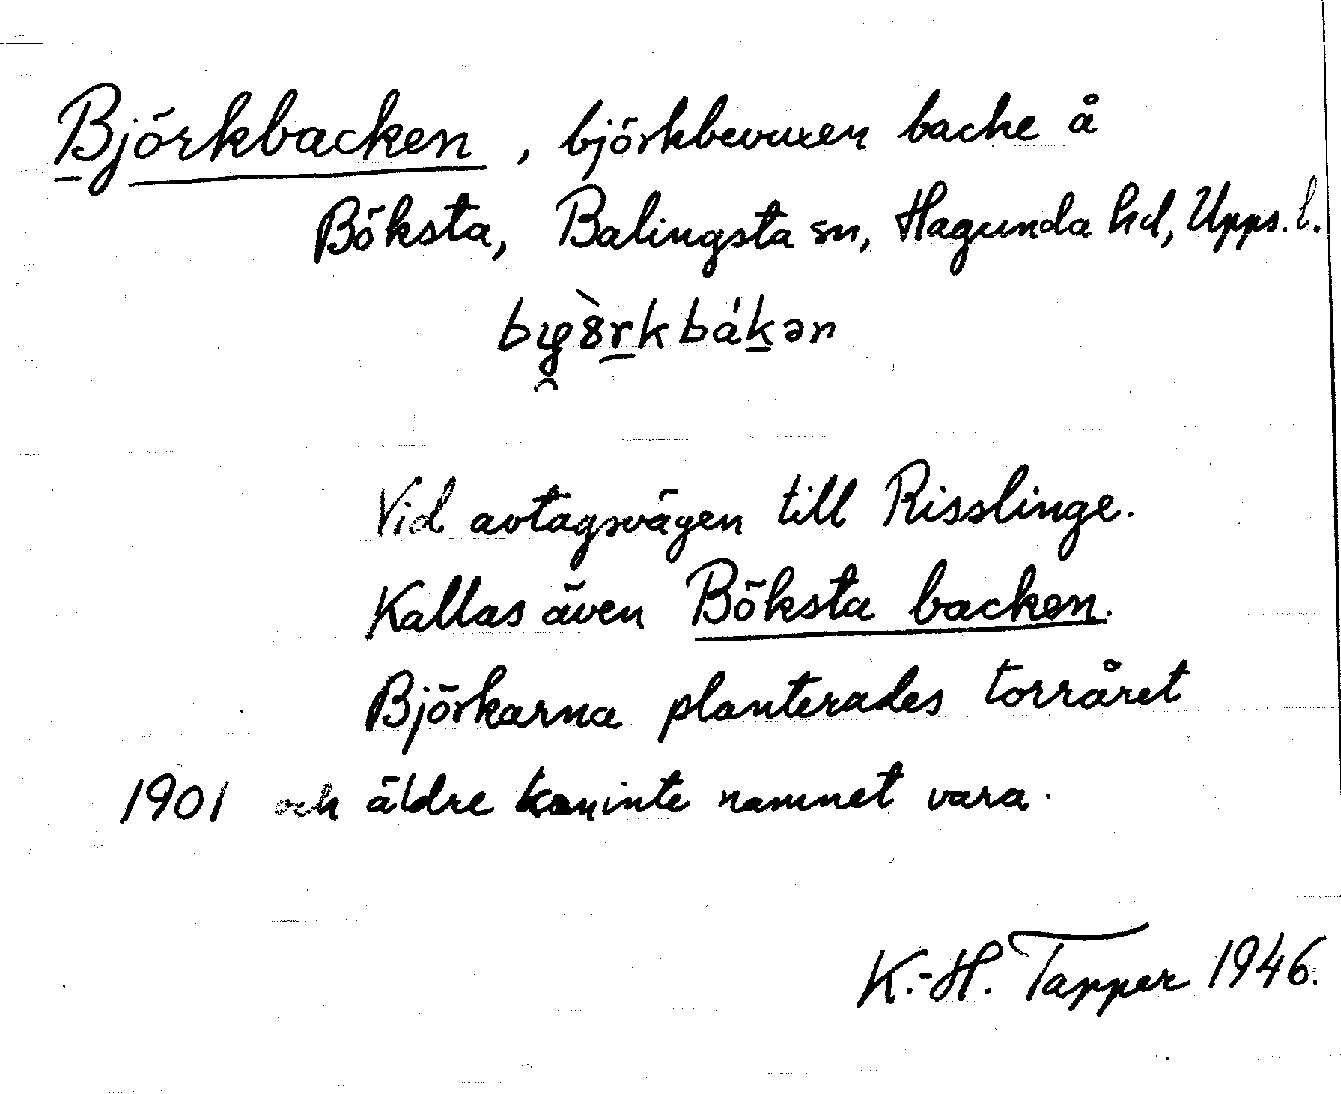 Björkbacken, björkbevuxen backe å
Böksta, Balingsta sn, Hagunda hd, Upps. l.
Vid avtagsvägen till Risslinge.
Kallas även Böksta backen.
Björkarna planterades torråret
1901 och äldre kan inte namnet vara.
K.-H. Tapper 1946.